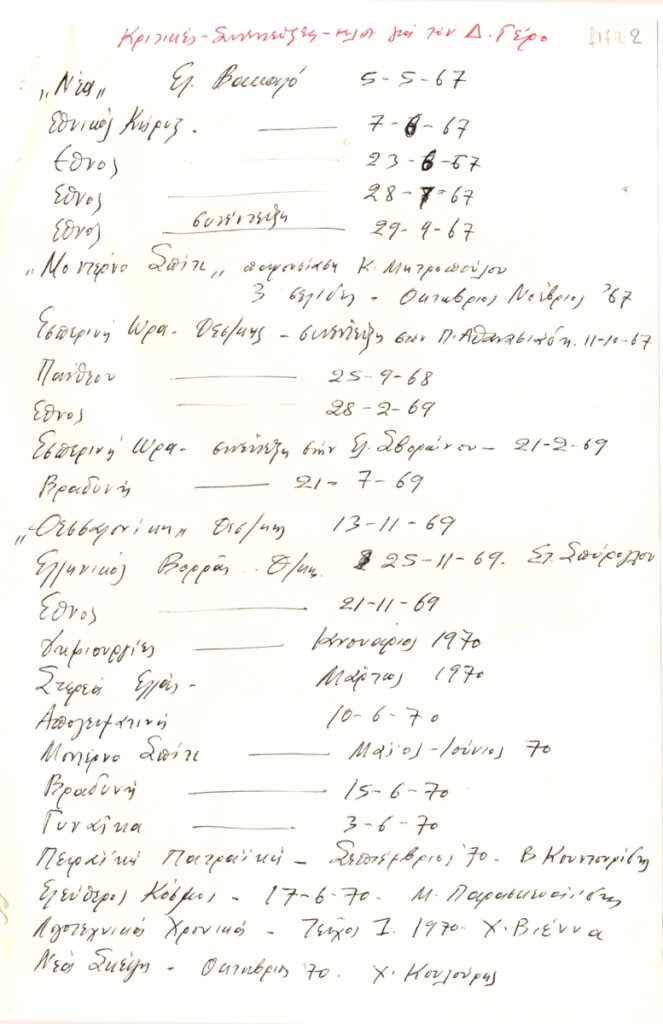 Κριτικές - Συνεντεύξεις - κλπ για τον Δ. Γέρο
2
„Νέα„ Ελ. Βακαλό 5-5-67
Εθνικός Κήρυξ. — 7-6-67
Έθνος 23-6-67
Έθνος — 28-7-67
Έθνος συνέντευξη 29-9-67
„Μοντέρνο Σπίτι„ παρουσίαση Κ. Μητροπούλου
3 σελίδες - Οκτώβριος Νοέβριος '67
Εσπερινή Ώρα - Θεσ/κης - συνέντευξη στον Π. Αθανασιάδη. 11-10-67
Πάνθεον — 25-9-68
Έθνος — 28-2-69
Εσπερινή Ώρα - συνέντευξη στην Ελ. Σβορώνου - 21-2-69
Βραδυνή — 21-7-69
„Θεσσαλονίκη„ Θεσ/κης 13-11-69
Ελληνικός Βορράς. Θ/κης. 25-11-69. Στ. Σπύρογλου
Έθνος — 21-11-69
Δημιουργίες — Ιανουάριος 1970
Στερεά Ελλάς - Μάρτιος 1970
Απογευματινή 10-6-70
Μοντέρνο Σπίτι — Μάϊος - Ιούνιος 70
Βραδυνή — 15-6-70
Γυναίκα — 3-6-70
Πειραϊκή Πατραϊκή - Σεπτέμβριος '70 - Β. Κουντουρίδης
Ελεύθερος Κόσμος - 17-6-70 - Μ. Παρασκευαΐδης
Λογοτεχνικά Χρονικά - Τεύχος 1. 1970 - Χ. Βιέννα
Νέα Σκέψη - Οκτώβριος '70. Χ. Κουλούρης